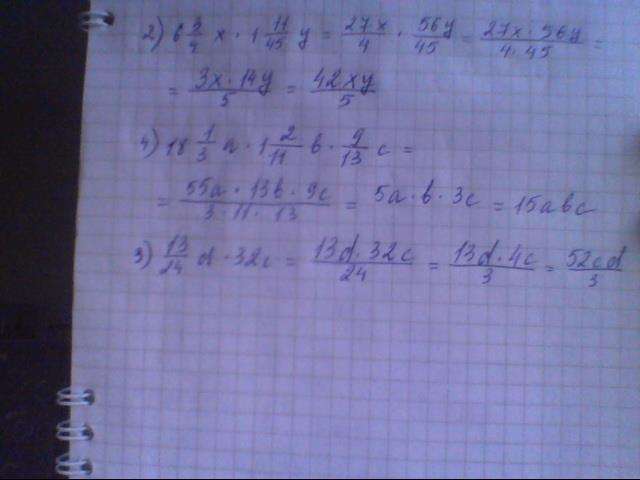 2) 6 3/4 x · 1 11/45 y = 27x/4 · 56y/45 = 27x · 56y/4 · 45 =
= 3x · 14y/5 = 42xy/5
4) 18 1/3 a · 1 2/11 b · 9/13 c =
= 55a · 13b · 9c/3 · 11 · 13 = 5a · b · 3c = 15abc
3) 13/24 d · 32c = 13d · 32c/24 = 13d · 4c/3 = 52cd/3